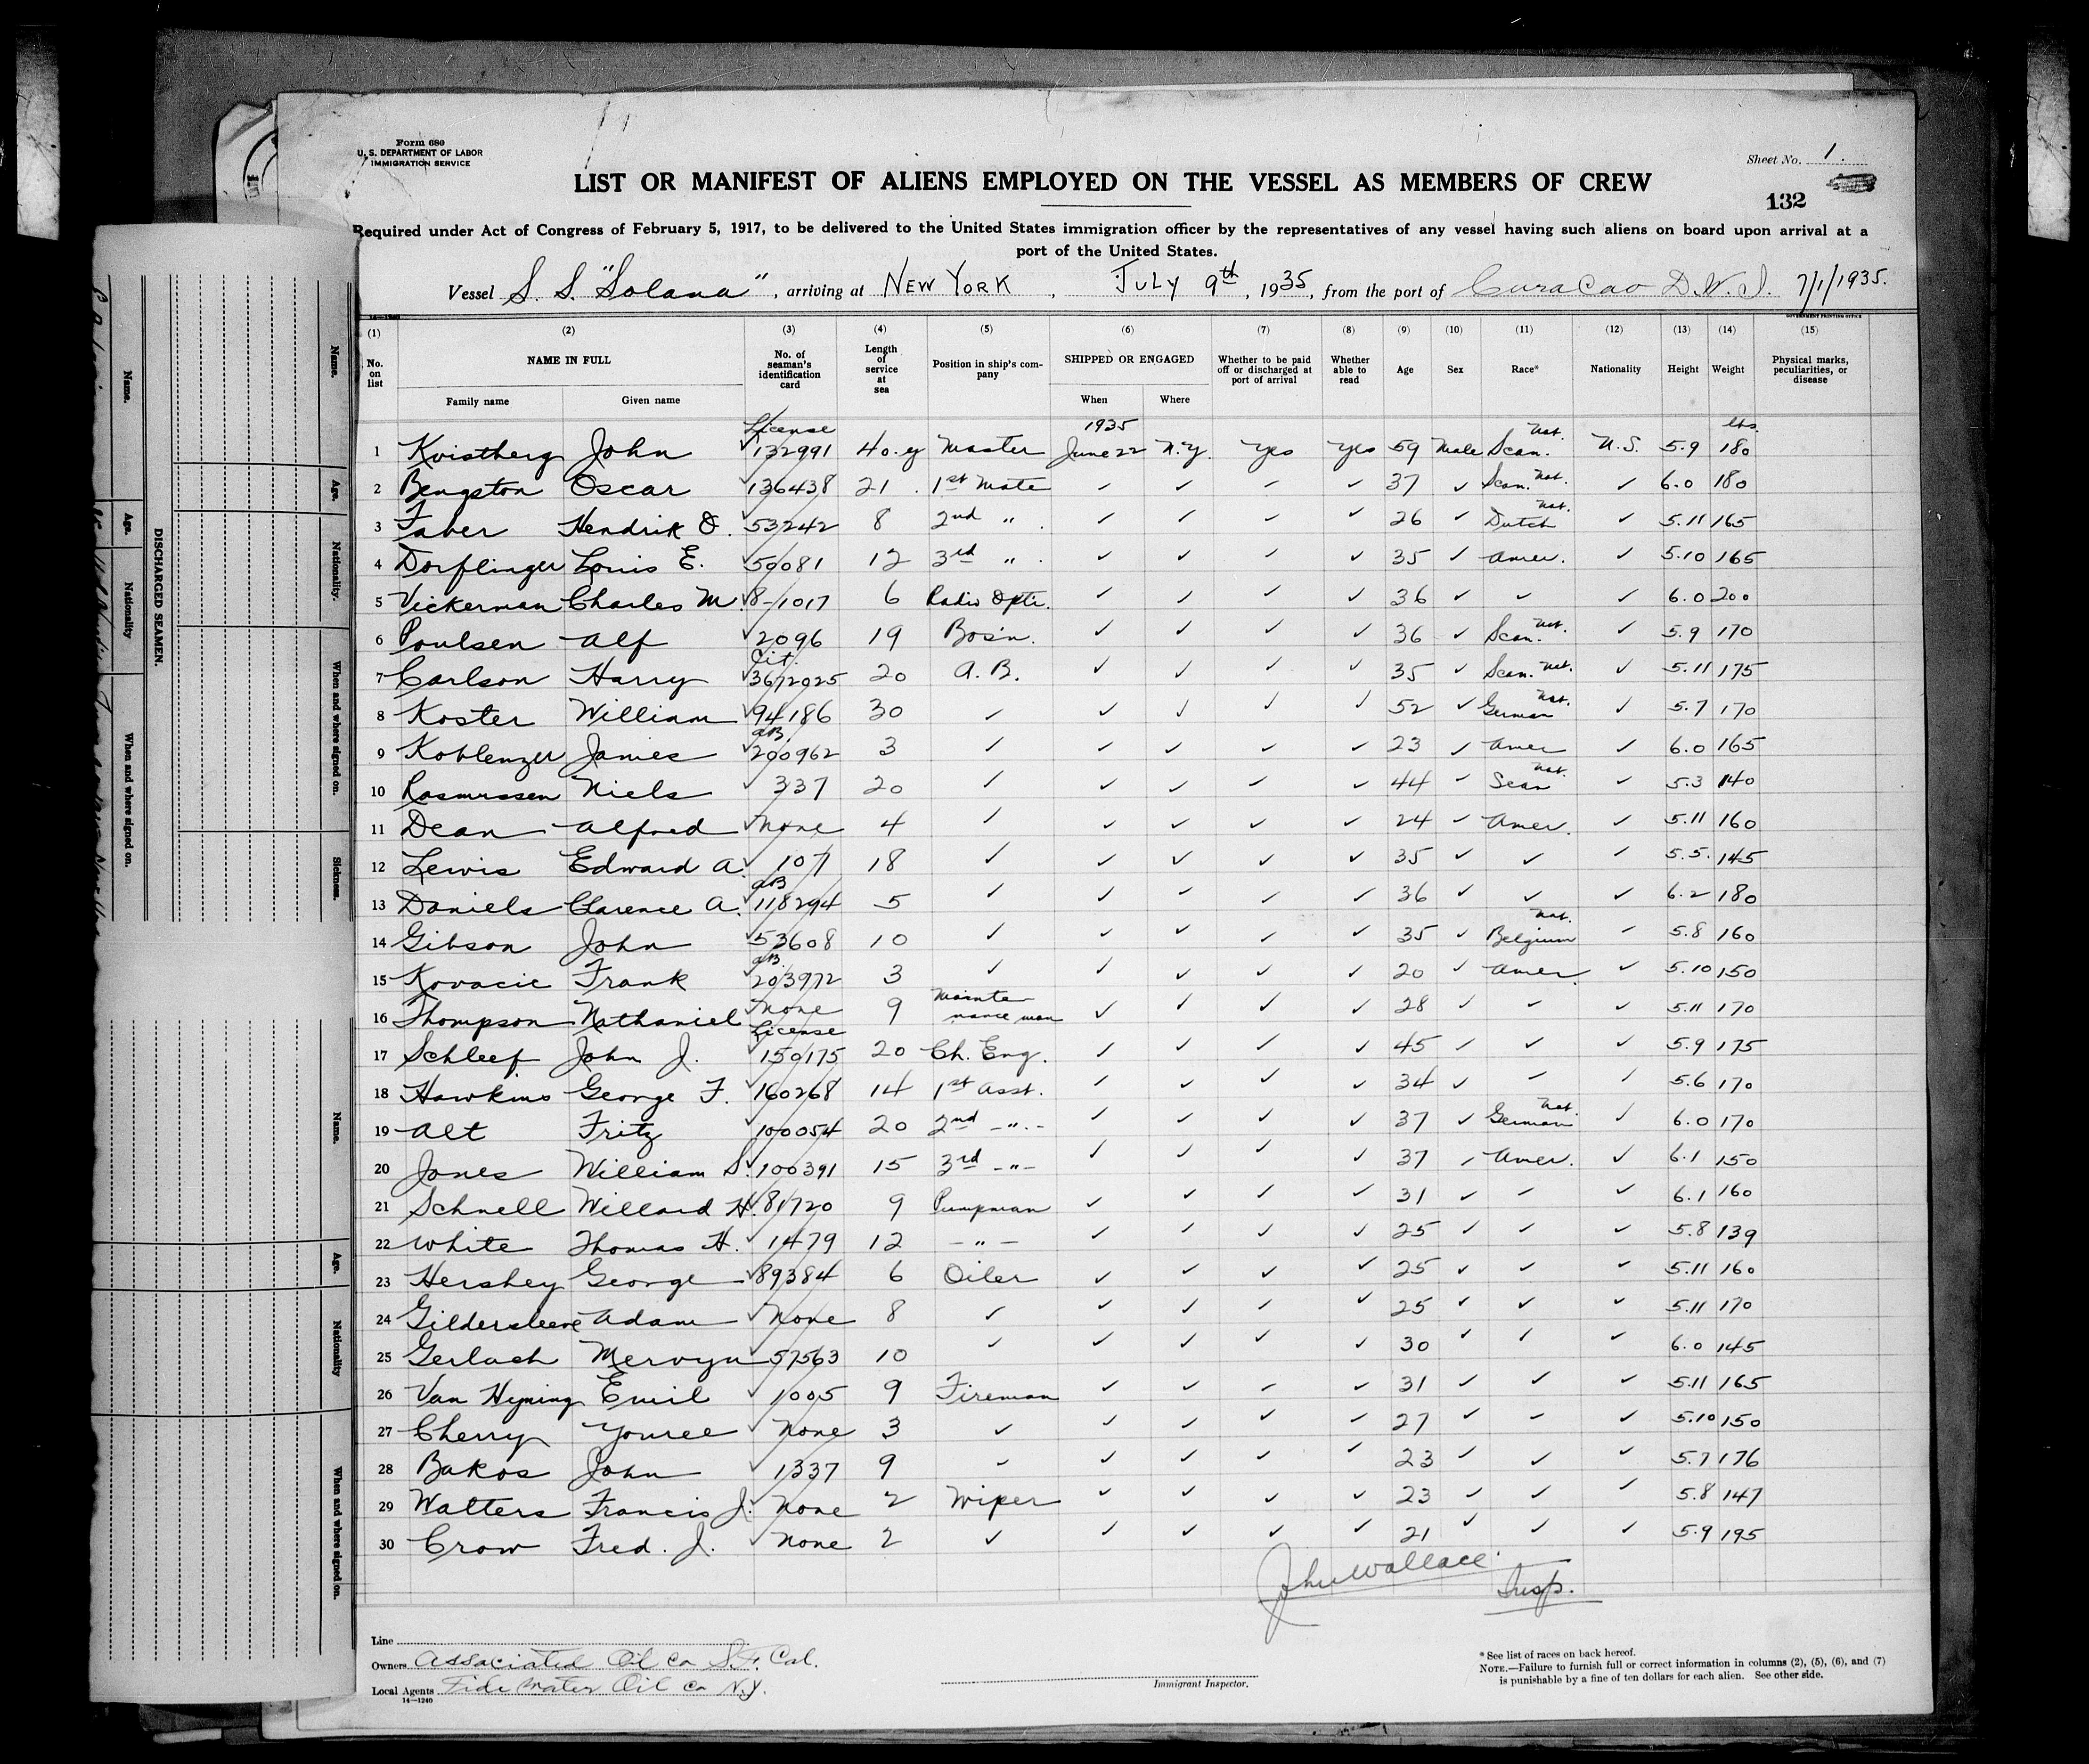 Form 680
U. S. DEPARTMENT OF LABOR
IMMIGRATION SERVICE
Sheet No. 1.
LIST OR MANIFEST OF ALIENS EMPLOYED ON THE VESSEL AS MEMBERS OF CREW
132
Required under Act of Congress of February 5, 1917, to be delivered to the United States immigration officer by the representatives of any vessel having such aliens on board upon arrival at a
port of the United States.
Vessel S. S. "Solana", arriving at NEW YORK, JULY 9th, 1935, from the port of Curacao D.W.I. 7/1/1935.
GOVERNMENT PRINTING OFFICE
(1) (2) (3) (4) (5) (6) (7) (8) (9) (10) (11) (12) (13) (14) (15)
No. on list NAME IN FULL No. of seaman's identification card Length of service at sea Position in ship's company SHIPPED OR ENGAGED Whether to be paid off or discharged at port of arrival Whether able to read Age Sex Race* Nationality Height Weight Physical marks, peculiarities, or disease
Family name Given name When Where
License 1935 Nat. lbs.
1 Kvistberg John ✓ 132991 40.y Master June 22 N.Y. Yes Yes 59 Male Scan. U.S. 5.9 180
2 Bengston Oscar ✓ 136438 21 1st Mate ✓ ✓ ✓ ✓ 37 ✓ Scan. Nat. ✓ 6.0 180
3 Faber Hendrik O. ✓ 53242 8 2nd " ✓ ✓ ✓ ✓ 26 ✓ Dutch Nat. ✓ 5.11 165
4 Dorflinger Louis E. ✓ 50081 12 3rd " ✓ ✓ ✓ ✓ 35 ✓ Amer. ✓ 5.10 165
5 Vickerman Charles M. ✓ 8-1017 6 Radio Optr. ✓ ✓ ✓ ✓ 36 ✓ ✓ ✓ 6.0 200
6 Poulsen Alf ✓ 2096 19 Bos'n. ✓ ✓ ✓ ✓ 36 ✓ Scan. Nat. ✓ 5.9 170
7 Carlson Harry ✓ Cit. 3672025 20 A.B. ✓ ✓ ✓ ✓ 35 ✓ Scan. Nat. ✓ 5.11 175
8 Koster William ✓ 94186 30 ✓ ✓ ✓ ✓ ✓ 52 ✓ German Nat. ✓ 5.7 170
9 Koblenzer James ✓ AB 200962 3 ✓ ✓ ✓ ✓ ✓ 23 ✓ Amer ✓ 6.0 165
10 Rasmussen Niels ✓ 337 20 ✓ ✓ ✓ ✓ ✓ 44 ✓ Scan Nat. ✓ 5.3 140
11 Dean Alfred ✓ None 4 ✓ ✓ ✓ ✓ ✓ 24 ✓ Amer. ✓ 5.11 160
12 Lewis Edward A. ✓ 1071 18 ✓ ✓ ✓ ✓ ✓ 35 ✓ ✓ ✓ 5.5. 145
13 Daniels Clarence A. ✓ AB 118294 5 ✓ ✓ ✓ ✓ ✓ 36 ✓ ✓ ✓ 6.2 180
14 Gibson John ✓ 53608 10 ✓ ✓ ✓ ✓ ✓ 35 ✓ Belgium Nat. ✓ 5.8 160
15 Kovacic Frank ✓ AB. 203972 3 ✓ ✓ ✓ ✓ ✓ 20 ✓ Amer. ✓ 5.10 150
16 Thompson Nathaniel ✓ None 9 Maintenance man ✓ ✓ ✓ ✓ 28 ✓ ✓ ✓ 5.11 170
17 Schleef John J. ✓ License 150175 20 Ch. Eng. ✓ ✓ ✓ ✓ 45 ✓ ✓ ✓ 5.9 175
18 Hawkins George F. ✓ 160268 14 1st Asst. ✓ ✓ ✓ ✓ 34 ✓ ✓ ✓ 5.6 170
19 Alt Fritz ✓ 100054 20 2nd -"- ✓ ✓ ✓ ✓ 37 ✓ German Nat. ✓ 6.0 170
20 Jones William S. ✓ 100391 15 3rd -"- ✓ ✓ ✓ ✓ 37 ✓ Amer. ✓ 6.1 150
21 Schnell Willard H. ✓ 81720 9 Pumpman ✓ ✓ ✓ ✓ 31 ✓ ✓ ✓ 6.1 160
22 White Thomas H. ✓ 1479 12 -"- ✓ ✓ ✓ ✓ 25 ✓ ✓ ✓ 5.8 139
23 Hershey George ✓ 89384 6 Oiler ✓ ✓ ✓ ✓ 25 ✓ ✓ ✓ 5.11 160
24 Gildersleeve Adam ✓ None 8 ✓ ✓ ✓ ✓ ✓ 25 ✓ ✓ ✓ 5.11 170
25 Gerlach Mervyn 57563 10 ✓ ✓ ✓ ✓ ✓ 30 ✓ ✓ ✓ 6.0 145
26 Van Hyning Emil ✓ 1005 9 Fireman ✓ ✓ ✓ ✓ 31 ✓ ✓ ✓ 5.11 165
27 Cherry Youree ✓ None 3 ✓ ✓ ✓ ✓ ✓ 27 ✓ ✓ ✓ 5.10 150
28 Bakos John ✓ 1337 9 ✓ ✓ ✓ ✓ ✓ 23 ✓ ✓ ✓ 5.7 176
29 Walters Francis J. ✓ None 2 Wiper ✓ ✓ ✓ ✓ 23 ✓ ✓ ✓ 5.8 147
30 Crow Fred. J. ✓ None 2 ✓ ✓ ✓ ✓ ✓ 21 ✓ ✓ ✓ 5.9 195
John Wallace.
Insp.
Line
Owners Associated Oil Co S.F. Cal.
Local Agents Tide Water Oil Co N.Y.
14—1240
Immigrant Inspector.
* See list of races on back hereof.
NOTE.—Failure to furnish full or correct information in columns (2), (5), (6), and (7)
is punishable by a fine of ten dollars for each alien. See other side.
DISCHARGED SEAMEN.
Name. Age. Nationality. When and where signed on. Sickness.
Name. Age. Nationality When and where signed on.
Name. Age. Nationality When and where signed on.